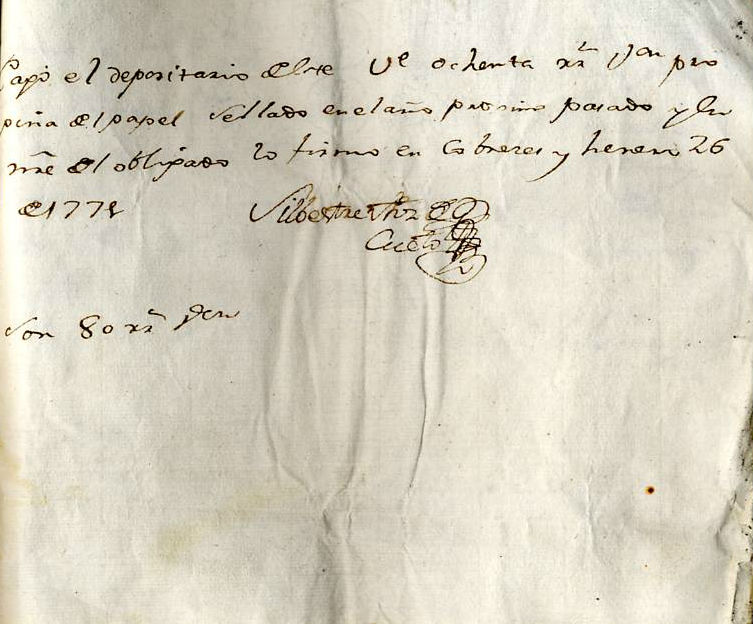 Pagó el depositario deste Ve ochenta rrs von pro
pina del papel Sellado en el año procimo pasado y en
nre del obligado lo firmo en Cobreces y henero 26
de 177
Silbestre de
Cueto
Son 80 rrs von